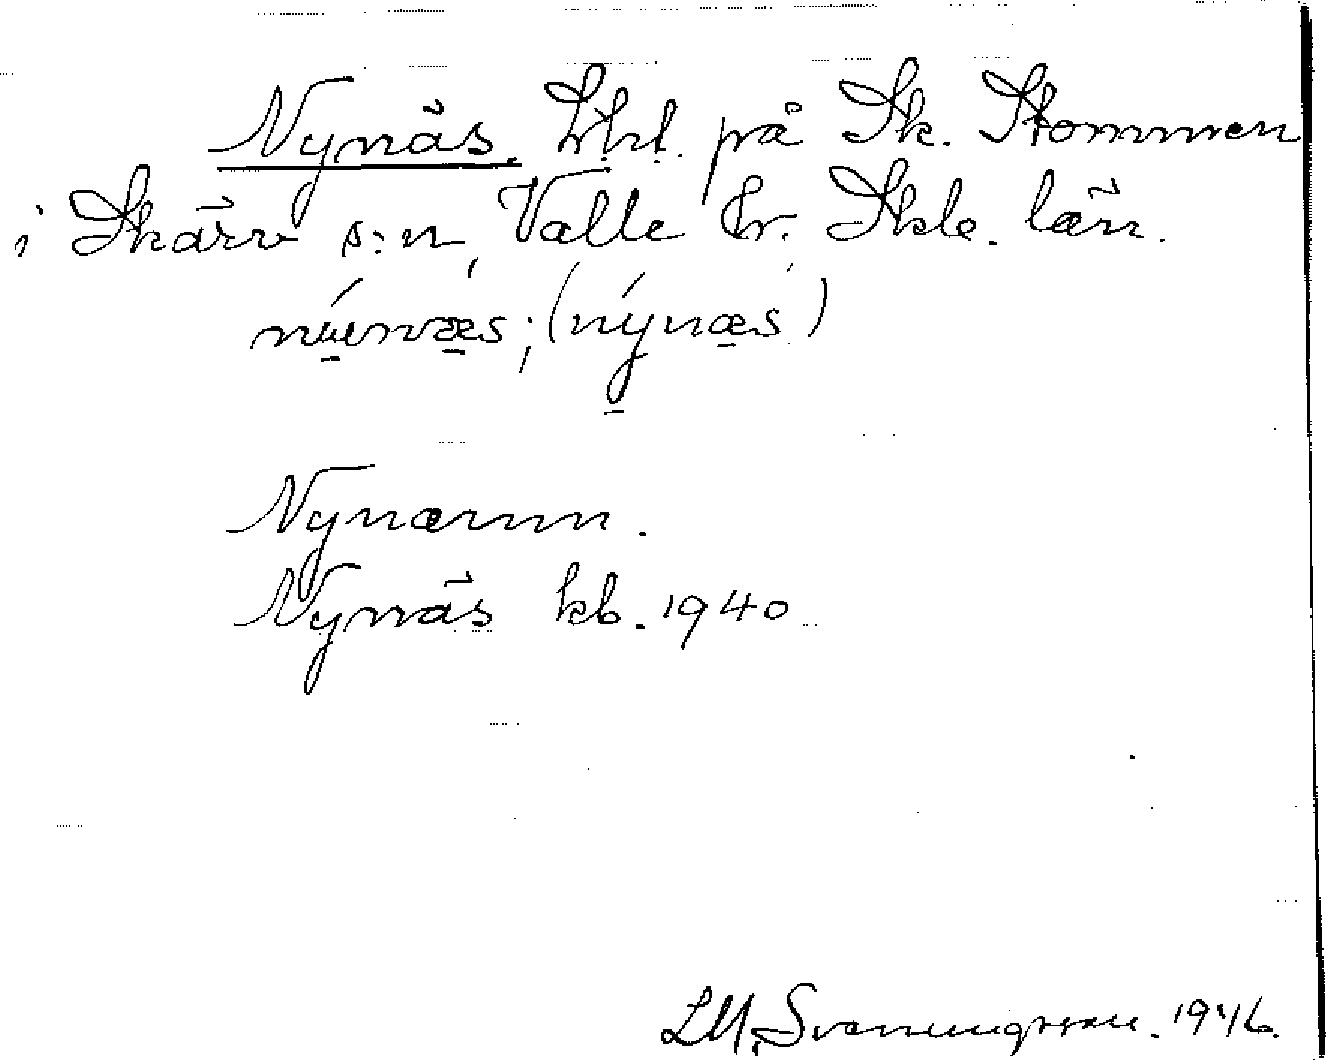 Nynäs. Lht. på Sk. Stommen
i Skärv s:n, Valle hr. Skb. län.
nýenæs; (nýnæs)
Nynæsnn.
Nynäs kb. 1940.
LM. Svenungsson. 1946.